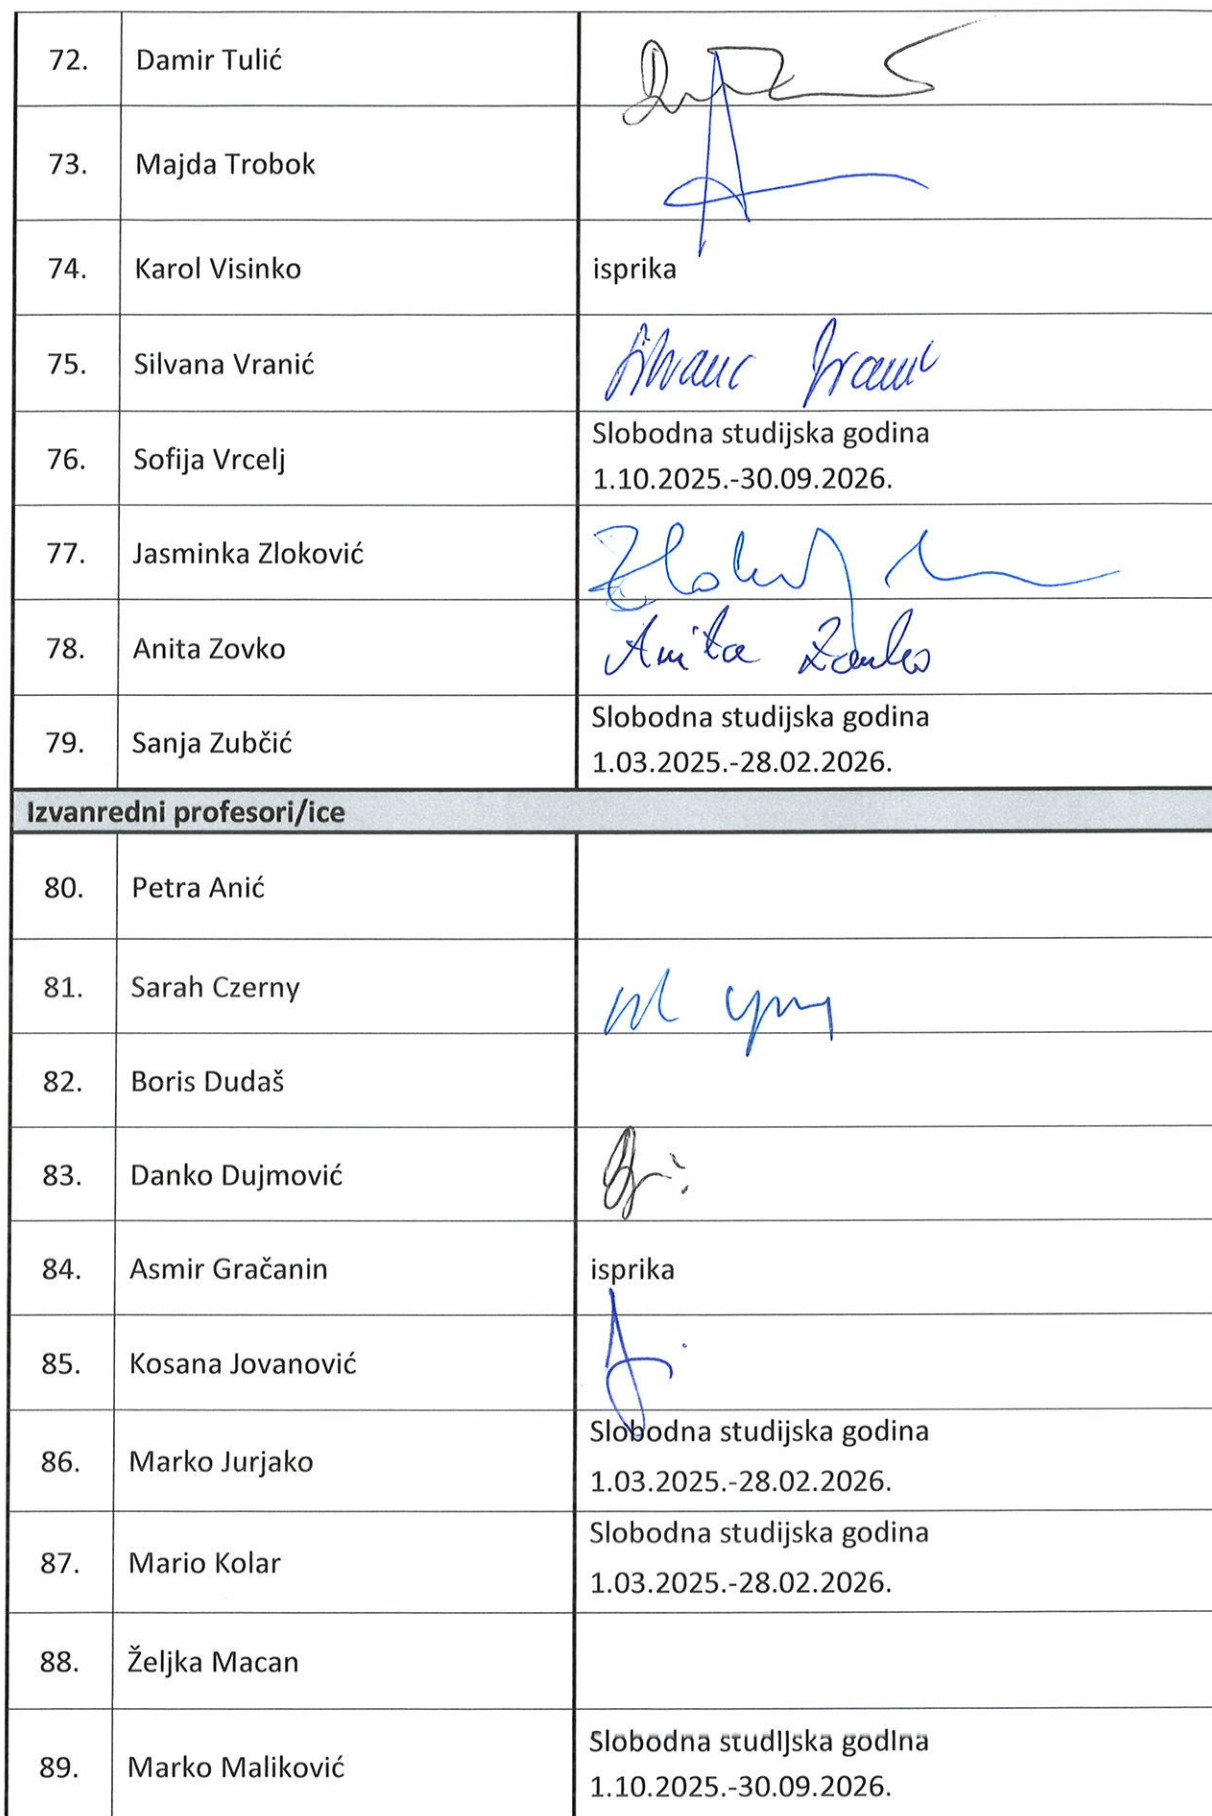 72. Damir Tulić
73. Majda Trobok
74. Karol Visinko isprika
75. Silvana Vranić Silvana Vranić
76. Sofija Vrcelj Slobodna studijska godina
1.10.2025.-30.09.2026.
77. Jasminka Zloković
78. Anita Zovko Anita Zovko
79. Sanja Zubčić Slobodna studijska godina
1.03.2025.-28.02.2026.
Izvanredni profesori/ice
80. Petra Anić
81. Sarah Czerny
82. Boris Dudaš
83. Danko Dujmović
84. Asmir Gračanin isprika
85. Kosana Jovanović
86. Marko Jurjako Slobodna studijska godina
1.03.2025.-28.02.2026.
87. Mario Kolar Slobodna studijska godina
1.03.2025.-28.02.2026.
88. Željka Macan
89. Marko Maliković Slobodna studijska godina
1.10.2025.-30.09.2026.